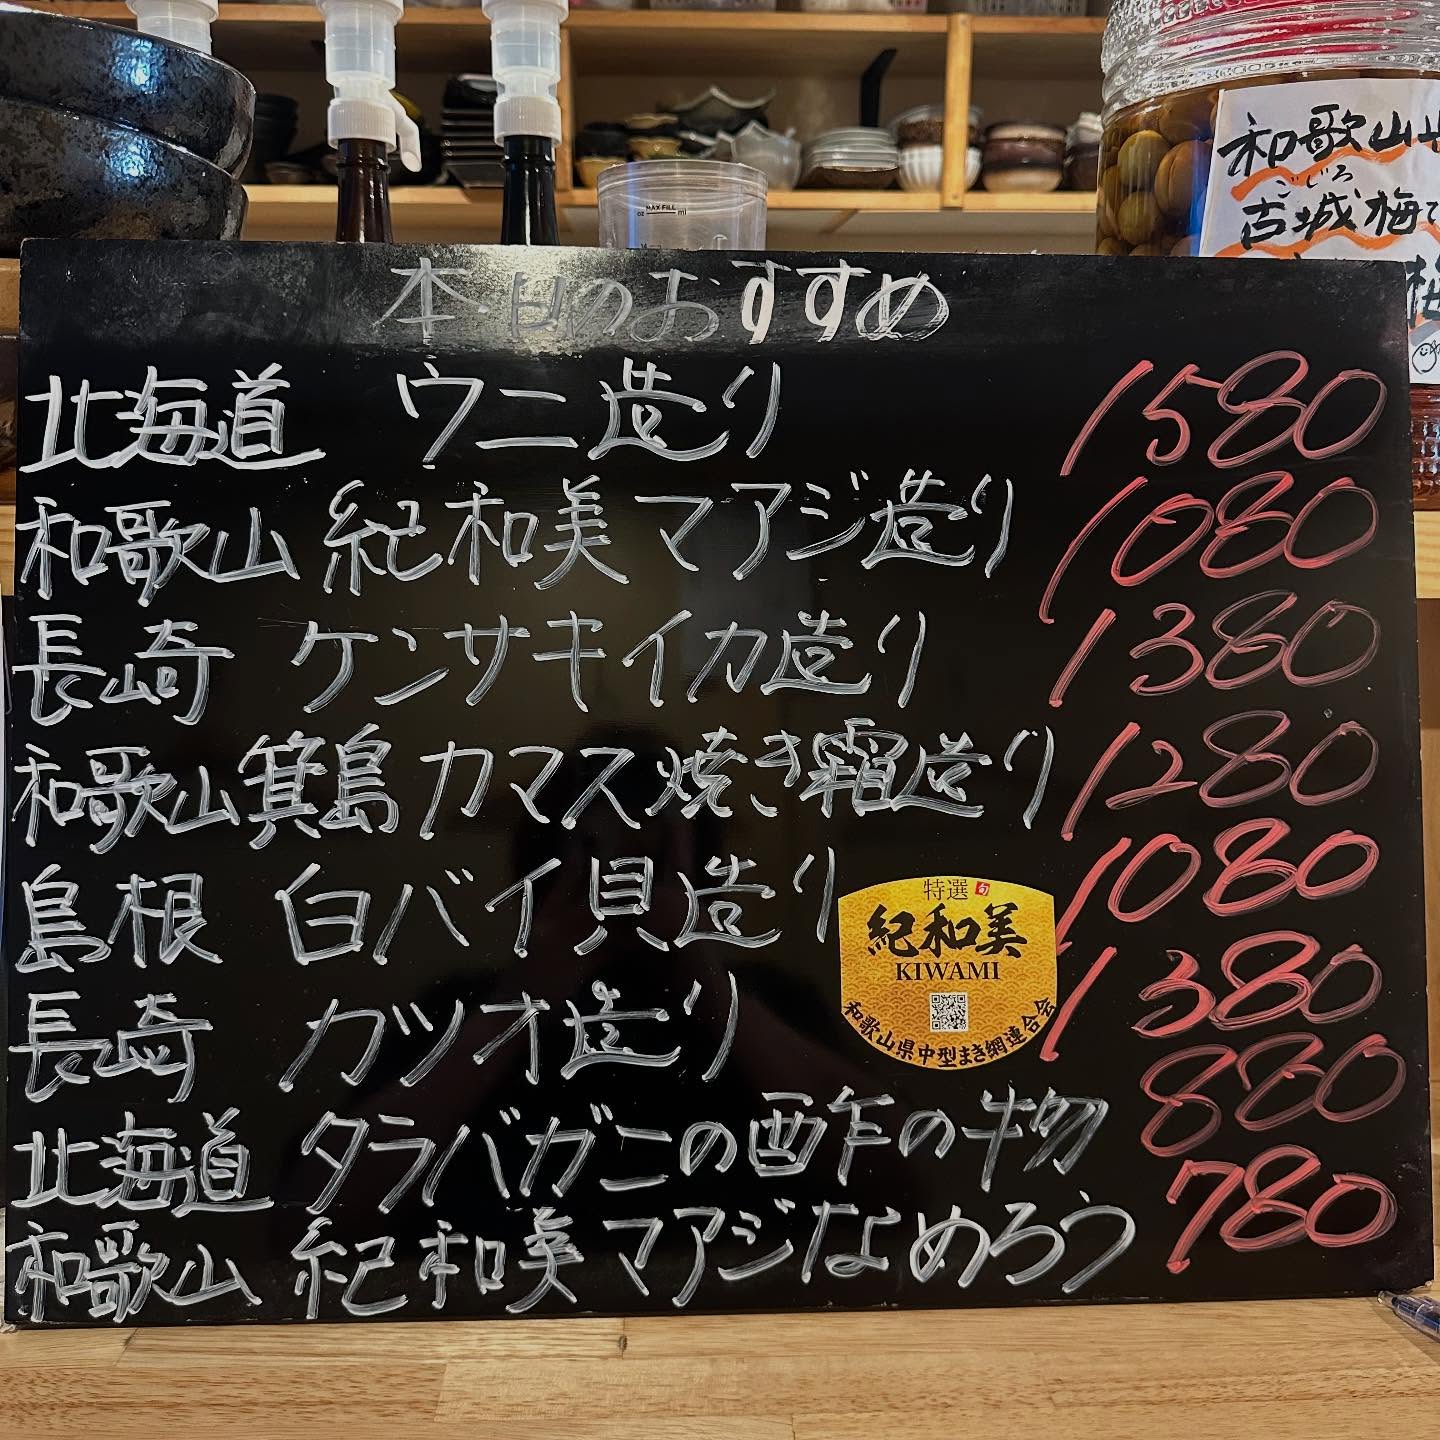 MAX FILL
oz
ml
和歌山
ごじろ
古城梅で
梅
本日のおすすめ
北海道 ウニ造り 1580
和歌山 紀和美マアジ造り 1080
長崎 ケンサキイカ造り 1380
和歌山箕島カマス焼き霜造り 1280
島根 白バイ貝造り 1080
長崎 カツオ造り 1380
北海道 タラバガニの酢の物 880
和歌山 紀和美マアジなめろう 780
特選 旬
紀和美
KIWAMI
和歌山県中型まき網連合会